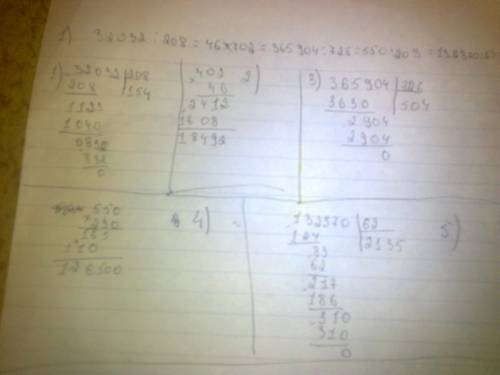 1) 32032 : 208 = 46 × 402 = 365904 : 726 = 550 · 203 =
1) 32032 | 208
208 | 154
1123
1040
0832
832
0
2)
46
2412
1608
18492
3) 365904 | 726
3630 | 504
2904
2904
0
4)
550
×230
165
110
126500
5)
132370 | 62
124 | 2135
83
62
217
186
310
310
0